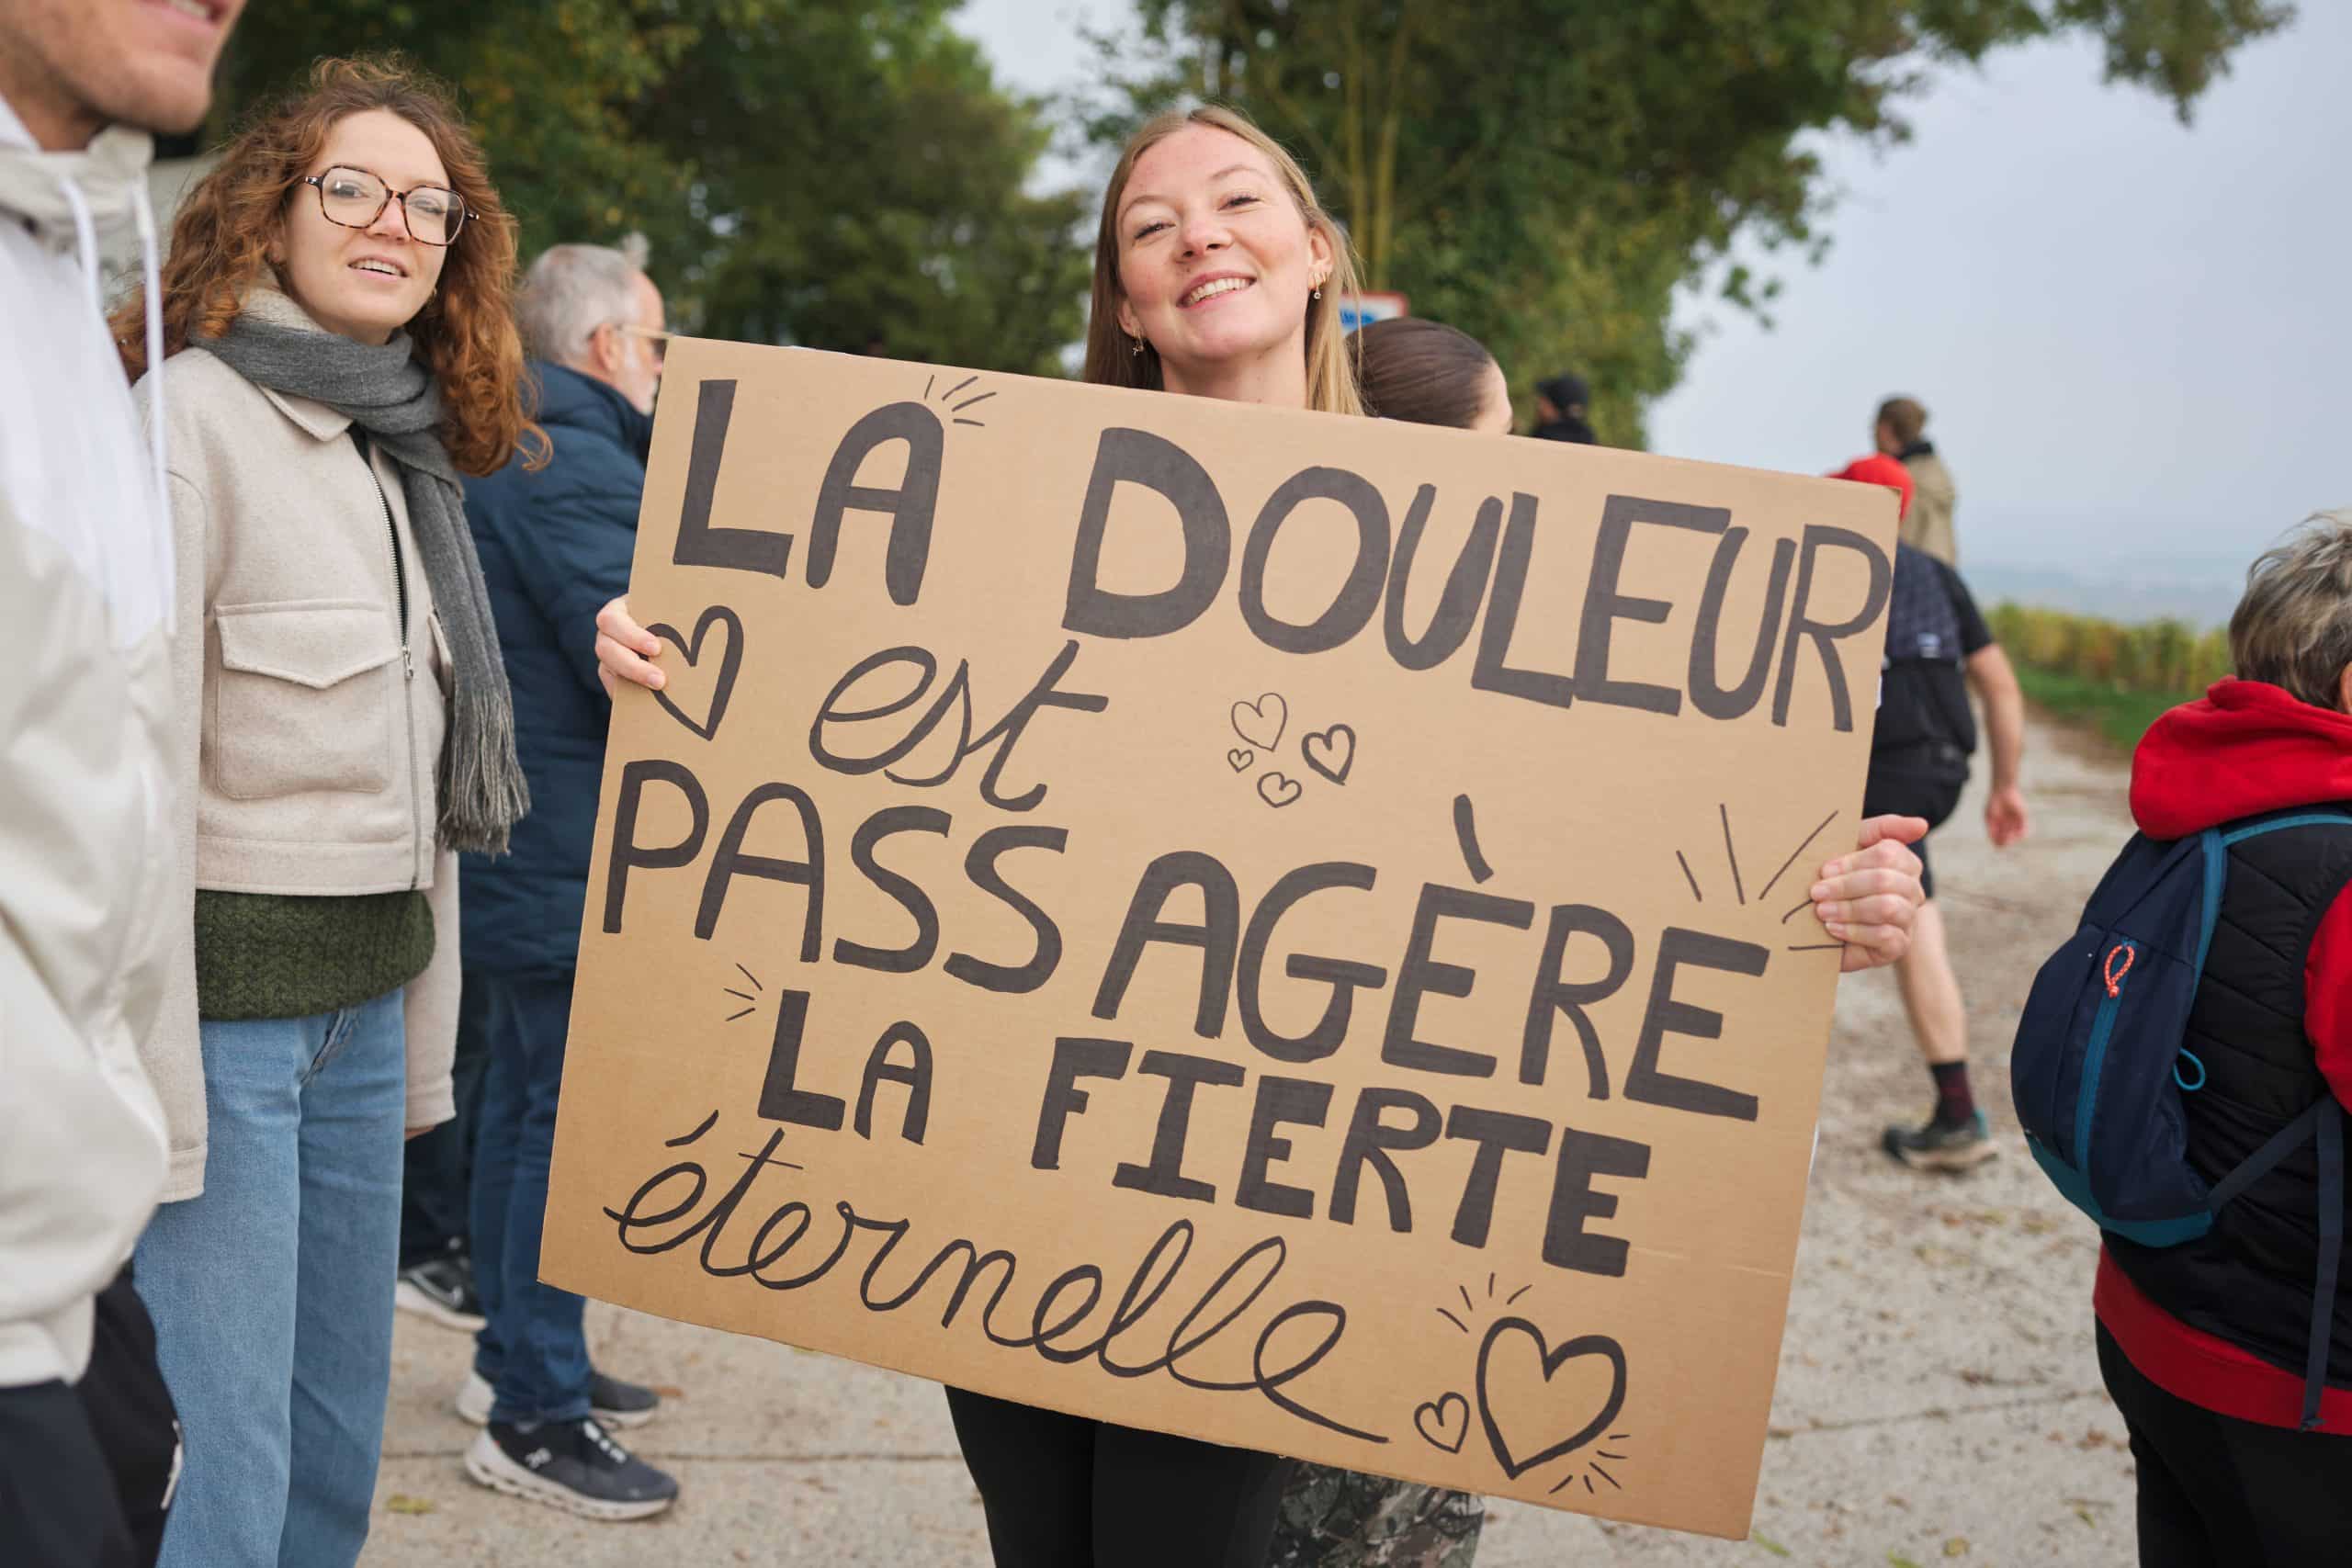 LA DOULEUR
est
PASSAGÈRE
LA FIERTE
éternelle